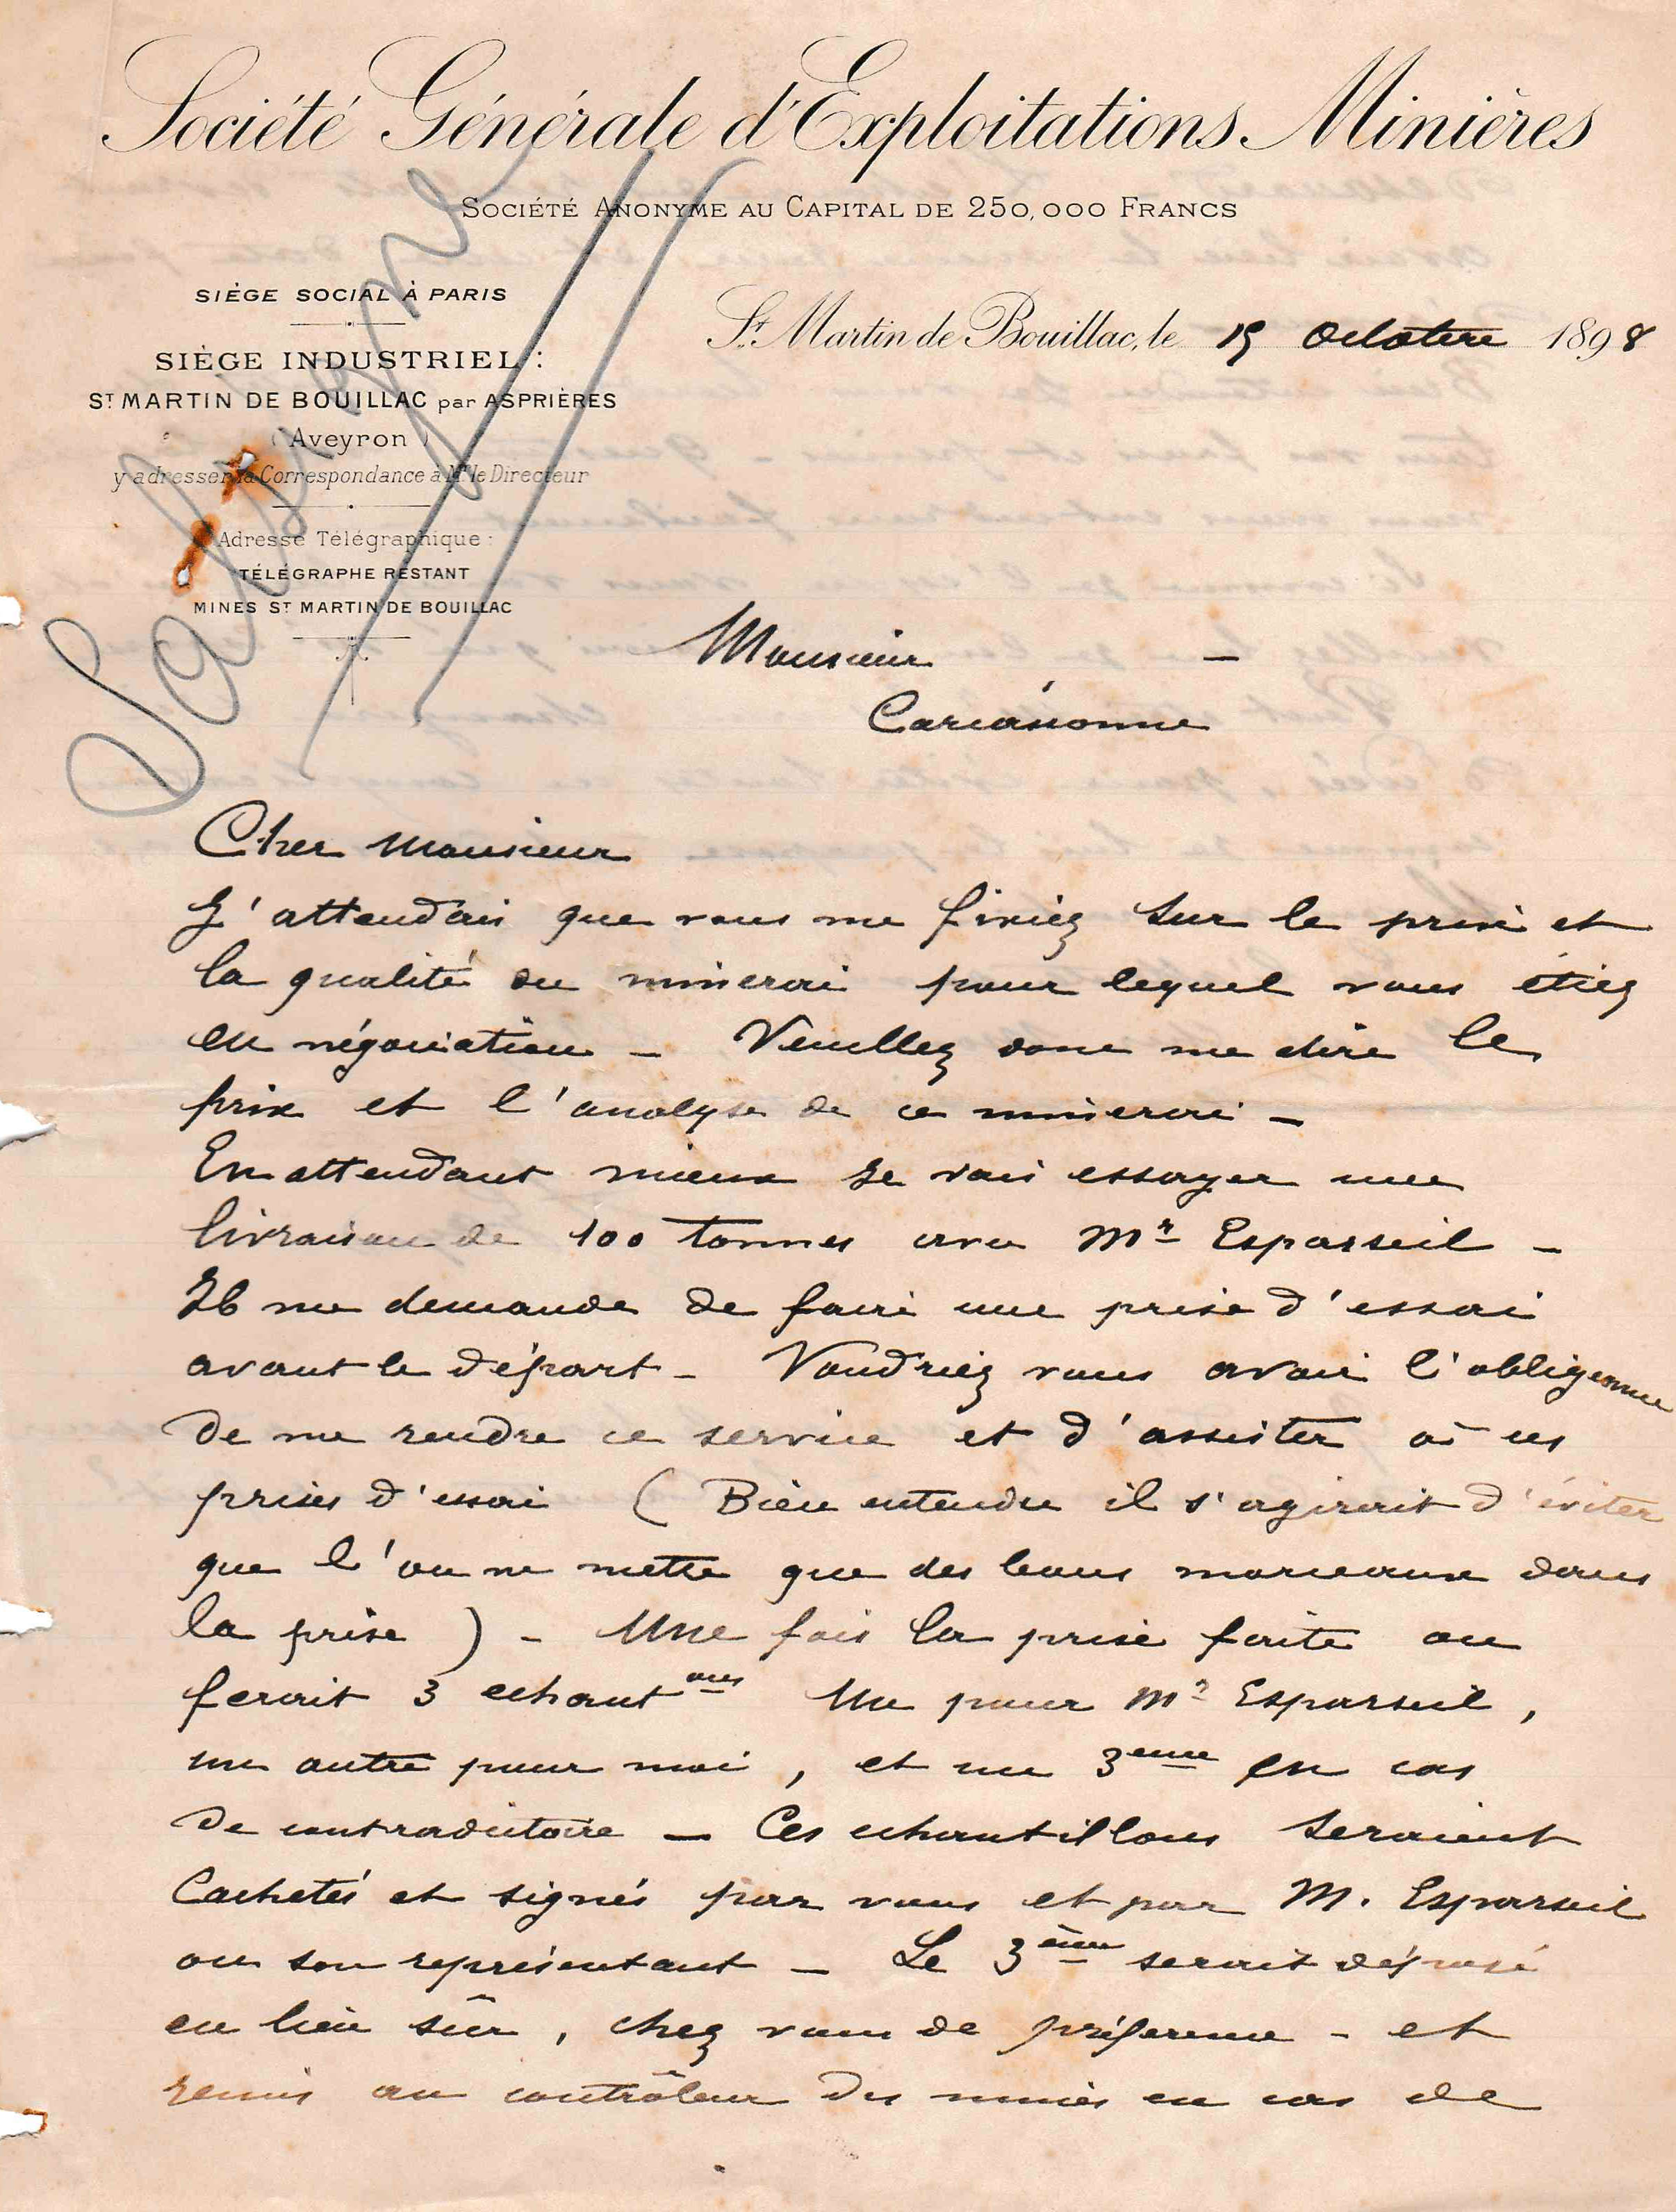 Société Générale d'Exploitations Minières
SOCIÉTÉ ANONYME AU CAPITAL DE 250,000 FRANCS
SIÈGE SOCIAL À PARIS
SIÈGE INDUSTRIEL :
ST MARTIN DE BOUILLAC par ASPRIÈRES
(Aveyron)
y adresser la Correspondance à Mr le Directeur
Adresse Télégraphique :
TÉLÉGRAPHE RESTANT
MINES ST MARTIN DE BOUILLAC
St Martin de Bouillac, le 19 Octobre 1898
Salsigne
Monsieur —
Carcassonne
Cher Monsieur
J'attendais que vous me fixiez sur le prix et
la qualité du minerai pour lequel vous étiez
en négociation — Veuillez donc me dire le
prix et l'analyse de ce minerai —
En attendant mieux je vais essayer une
livraison de 100 tonnes avec Mr Esparseil —
Il me demande de faire une prise d'essai
avant le départ — Voudriez vous avoir l'obligeance
de me rendre ce service et d'assister à ces
prises d'essai ( Bien entendu il s'agirait d'éviter
que l'on ne mette que des bons morceaux dans
la prise ) — Une fois la prise faite on
ferait 3 echantons Un pour Mr Esparseil,
un autre pour moi, et un 3eme en cas
de contradictoire — Ces echantillons seraient
Cachetés et signés par vous et par M. Esparseil
ou son représentant — Le 3ème serait déposé
en lieu sûr, chez vous de préférence — et
remis au contrôleur des mines en cas de